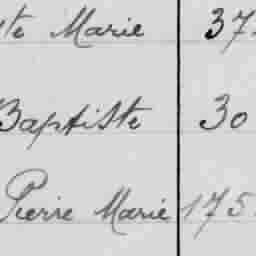 te Marie 37
Baptiste 30
Pierre Marie 175